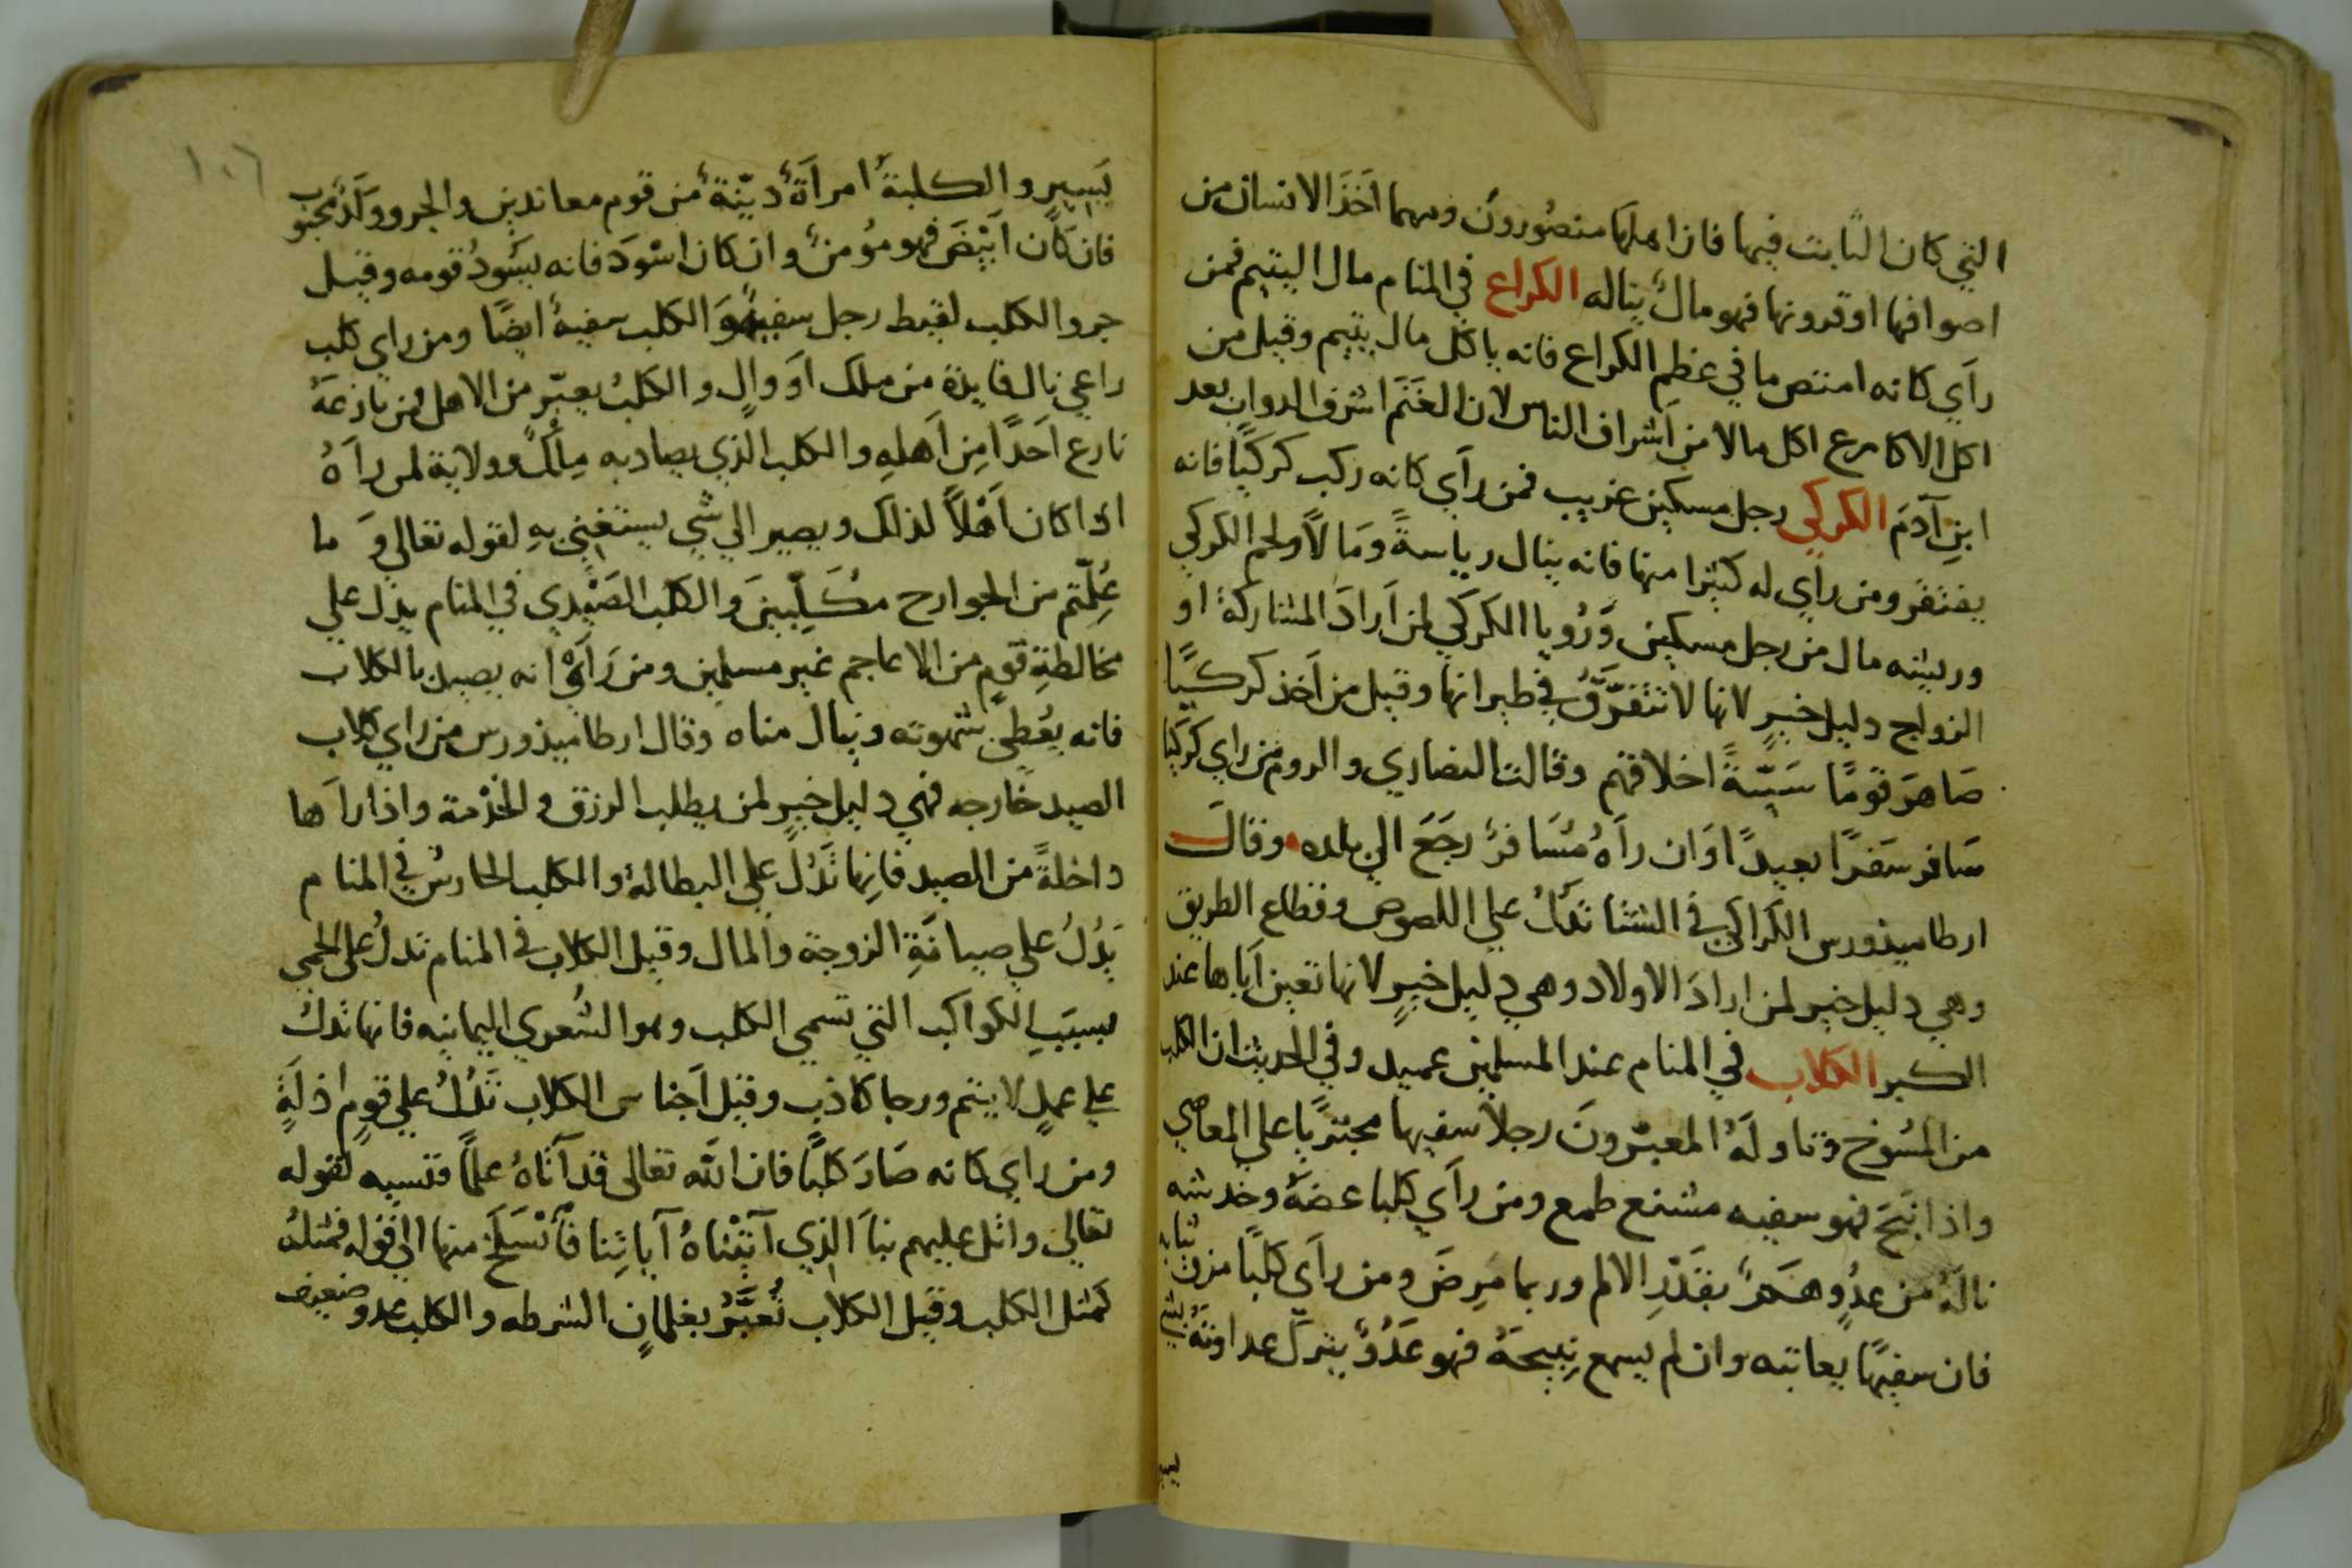 التي كان النابت فيها فان اهلها منصورون ومهما اَخَذَ الانسان من
اصوافها او قرونها فهو مالٌ يناله الكراع في المنام مال اليتيم فمن
رأي كانه امتص ما في عظم الكراع فانه ياكل مال يتيم وقيل من
اكل الاكارع اكل مالا من اَشراف الناس لان الغَنَم اشرف الدواب بعد
ابنِ آدَمَ الكركي رجل مسكين غريب فمن رأي كانه ركب كركيًا فانه
يفتقر ومن راي له كثيرا منها فانه ينال رياسةً ومَالاً ولحم الكركي
وريشه مال من رجل مسكين وَرُويا الكركي لمن اَرادَ المشاركة او
الزواج دليل خيرٍ لانها لا تتفرَّقُ في طيرانها وقيل من اَخذ كركيًا
صَاهَرَ قومًا سَيّئةً اخلاقهم وقالت النصاري والروم من راي كركيا
سَافر سَفرًا بعيدًا اوَان رآهُ مُسَافرٌ رجَعَ الي بلده وقالَ
ارطاميذورس الكَراكي في الشتا تَدُلُ علي اللصوص وقطاع الطريق
وهي دليل خير لمن ارادَ الاولاد وهي دليل خيرٍ لانها تعين اَباها عند
الكبر الكلاب في المنام عند المسلمين عبيد وفي الحديث ان الكلب
من المسُوخ وتاولَهُ المعبّرونَ رجلاً سفيها مجتريًا علي المعاصي
واذا نبَحَ فهو سفيه مشنع طمع ومن رآي كلبا عضهُ وخدشه
نالَهُ من عدُوٍ هَمٌ بقَدَرِ الالم وربما مَرِضَ ومن راَي كلبًا مزق ثيابه
فان سفيهًا يعاتبه وان لم يسمع نِبيحَهُ فهو عَدُوٌ يترك عداوتَهُ بشي
يسير
يَسيرٍ والكلبةُ امرأَةٌ دنيّةٌ من قوم معاندين والجرو ولَدٌ محبوب
فان كَان اَبيَضَ فهو مُؤمنٌ وان كان اسْوَدَ فانه يسُودُ قومه وقيل
جرو الكلب لقيط رجل سفيهٌ وَالكلب سفيهٌ ايضًا ومن راي كلب
راعي نال فايدة من ملك اَو والٍ والكلبُ يعبّر من الاهل فمن نازعَهُ
نازع اَحَدًا مِن اَهلهِ والكلب الذي يصاد به مِلْكٌ وولاية لمن رآهُ
اذا كان اَهْلاً لذلك ويصير الي شي يستغني بهِ لقوله تعالي وَ ما
عُلِّمتم من الجوارح مُكَلِّبينَ والكلب الصَيْدي في المنام يدُل علي
مخالطةِ قومٍ من الاعاجم غير مسلمين ومن رَآي انه يصيد بالكلاب
فانه يعُطي شهوته وينال مناه وقال ارطاميذورس من راي كلاب
الصيد خارجه فهي دليل خيرٍ لمن يطلب الرزق والخدْمة واذا رآها
داخلةً من الصيد فانها تَدُلُ علي البطالة والكلب الحارسُ في المنام
يَدُلُ علي صيانَةِ الزوجة والمال وقيل الكلاب في المنام تدلُ علي الحمي
بسببِ الكواكب التي تسمي الكلب وهو الشعري اليمانيه فانها تدلُ
علي عملٍ لا يتم ورجا كاذب وقيل اَجناس الكلاب تَدُلُ علي قومٍ اذلَةٍ
ومن راي كانه صَارَ كلبًا فان الله تعالى قد آتَاهُ علمًا فنسيه لقوله
تعالي واتل عليهم نبَاَ الذي آتيْناهُ آياتِنا فَاَنْسَلَخَ منها الي قوله فمثلهُ
كمثل الكلب وقيل الكلاب تُعَبَّرُ بغلمانٍ الشرطه والكلب عدو ضعيف
١٠٦